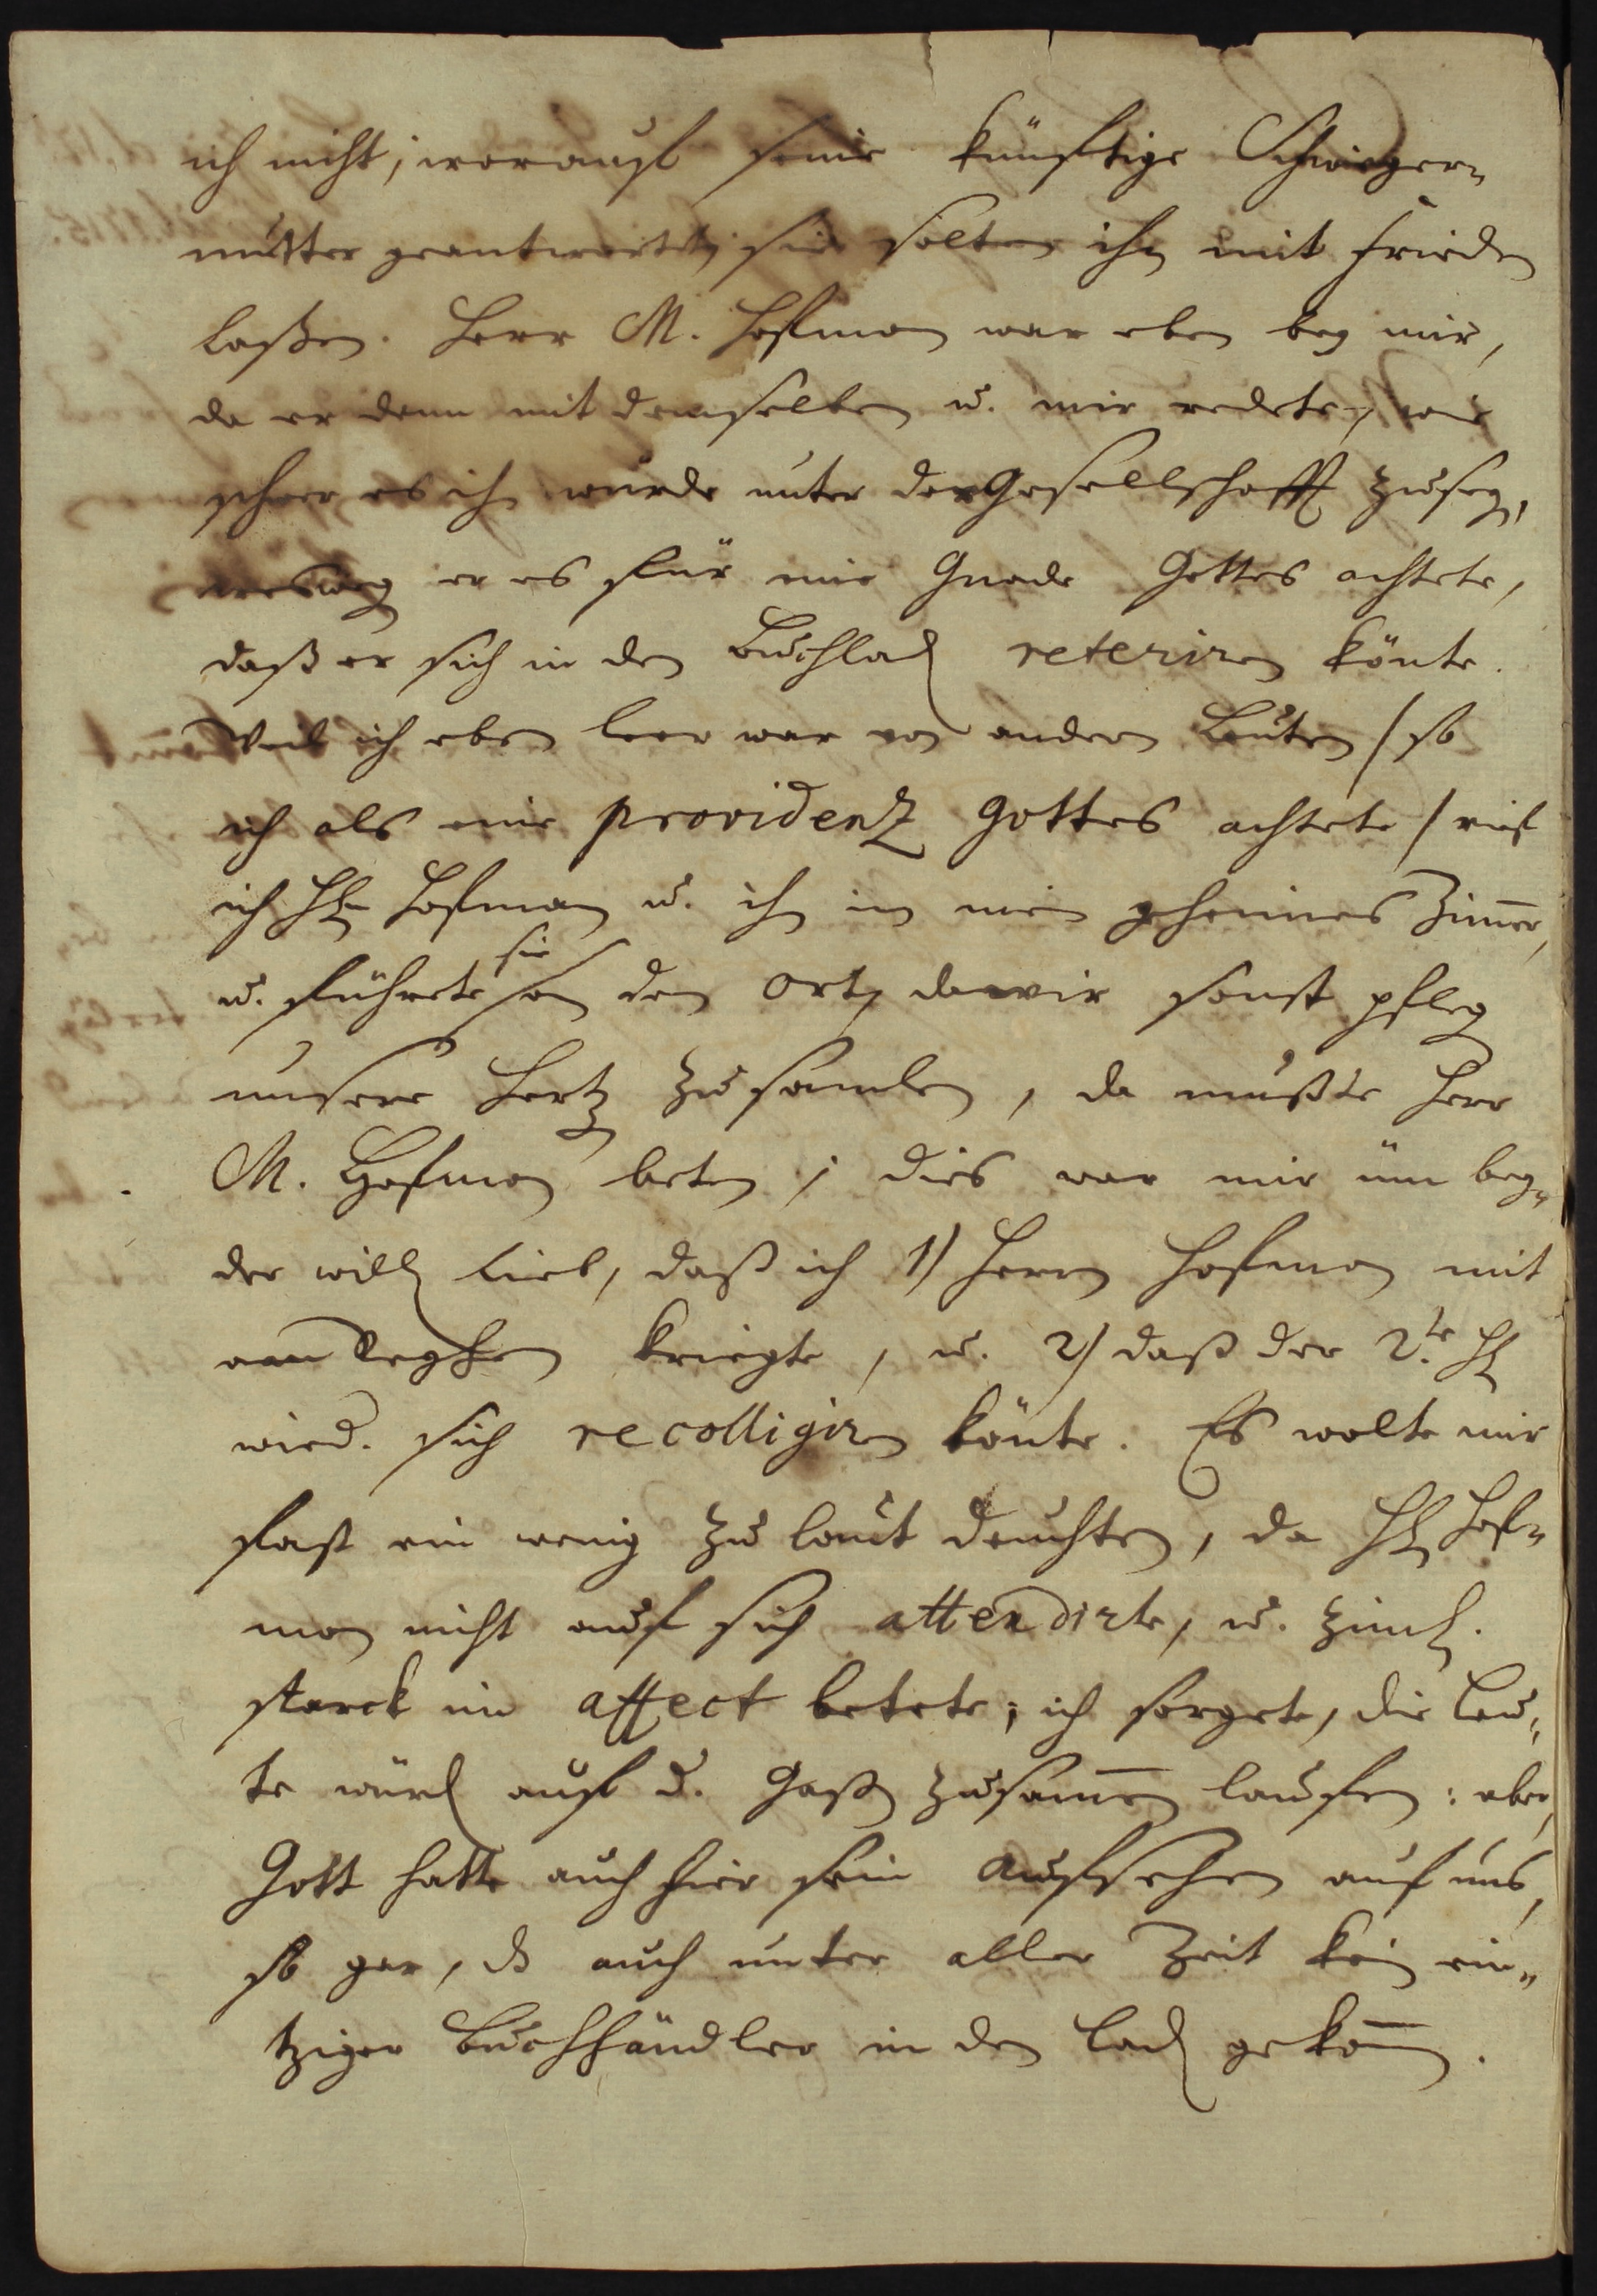 ich nicht; worauf seine künftige Schwieger-
mutter geantwortet, sie solten ihn mit Frieden
laßen. Herr M. Hofman war eben bey mir,
da er denn mit demselben u. mir redete, wie
schwer es ihm würde unter der Gesellschafft zu seyn,
er es für eine Gnade Gottes achtete,
daß er sich in den Buchladen reteriren könte.
Weil ich eben leer war von andern Leuten / so
ich als eine providentz Gottes achtete / rief
ich HE. Hofman u. ihn in mein geheimes Zimmer,
u. führete sie an den Ort, da wir sonst pflegen
unsere Hertzen zu samlen, da mußte Herr
M. Hofman beten; dies war mir um bey-
der willen lieb, daß ich 1) Herrn Hofman mit
kriegte, u. 2) daß der 2.te HE.
wied. sich recolligiren könte. Es wolte mir
fast ein wenig zu laut deuchten, da HE. Hof-
man nicht auf sich attendirte, u. zieml.
starck im affect betete; ich sorgete, die Leu-
te würden auf d. Gaßen zusammen lauffen: aber
Gott hatte auch hier sein Aufsehen auf uns,
so gar, daß auch unter aller Zeit kein ein-
tziger Buchhändler in den Laden gekommen.